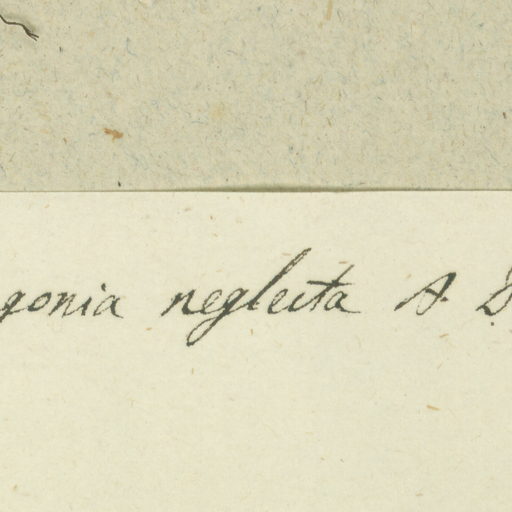 gonia neglecta A. D